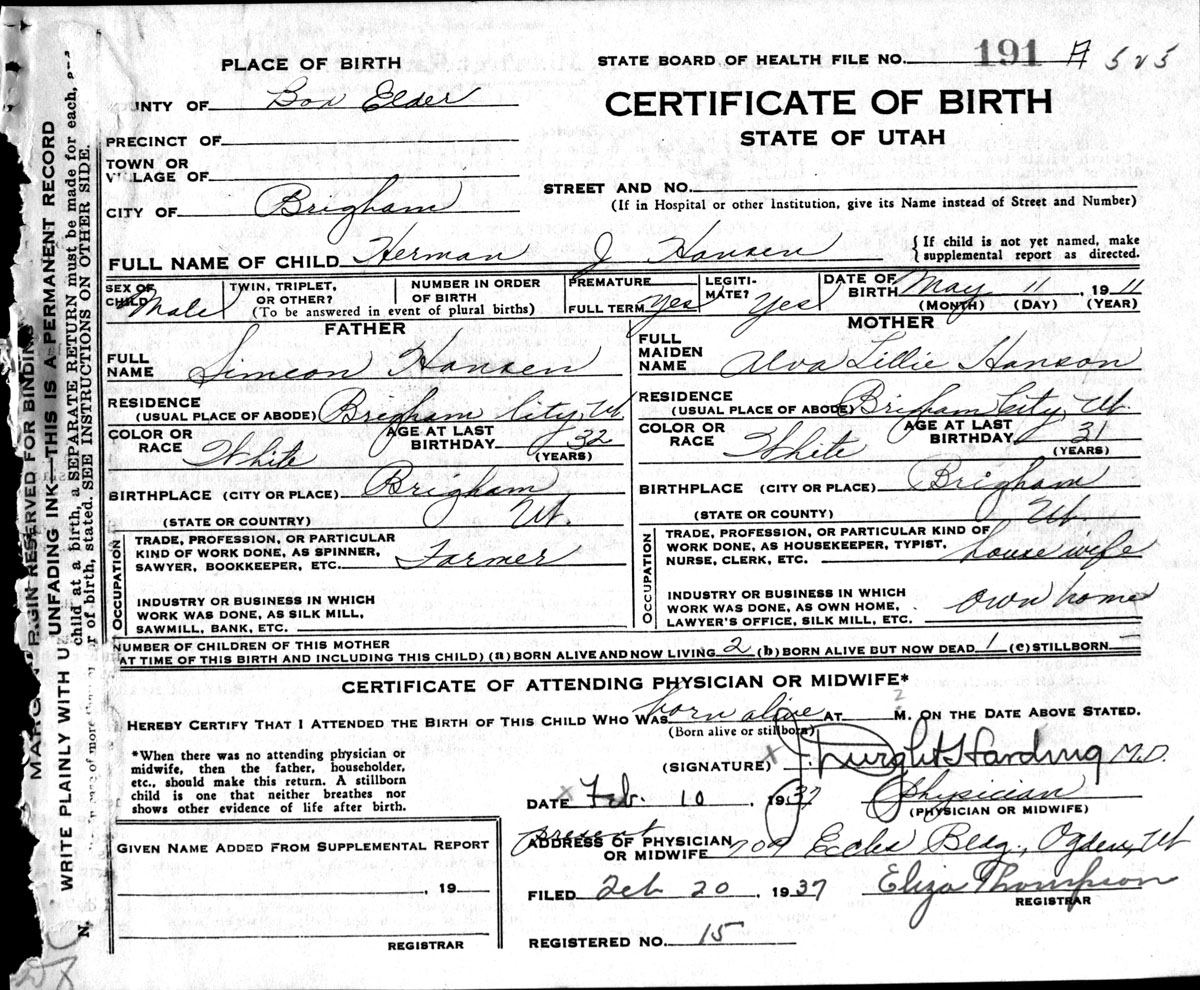 PLACE OF BIRTH
STATE BOARD OF HEALTH FILE NO. 191 A 525
COUNTY OF Box Elder
CERTIFICATE OF BIRTH
STATE OF UTAH
PRECINCT OF
TOWN OR
VILLAGE OF
STREET AND NO.
(If in Hospital or other Institution, give its Name instead of Street and Number)
CITY OF Brigham
FULL NAME OF CHILD Herman J Hansen
{If child is not yet named, make
supplemental report as directed.
SEX OF
CHILD Male
TWIN, TRIPLET,
OR OTHER?
NUMBER IN ORDER
OF BIRTH
(To be answered in event of plural births)
PREMATURE
FULL TERM Yes
LEGITI-
MATE? Yes
DATE OF
BIRTH May 11, 1911
(MONTH) (DAY) (YEAR)
FATHER
FULL
NAME Simeon Hansen
RESIDENCE
(USUAL PLACE OF ABODE) Brigham City, Ut.
COLOR OR
RACE White
AGE AT LAST
BIRTHDAY 32
(YEARS)
BIRTHPLACE (CITY OR PLACE) Brigham
(STATE OR COUNTRY) Ut.
OCCUPATION
TRADE, PROFESSION, OR PARTICULAR
KIND OF WORK DONE, AS SPINNER,
SAWYER, BOOKKEEPER, ETC. Farmer
INDUSTRY OR BUSINESS IN WHICH
WORK WAS DONE, AS SILK MILL,
SAWMILL, BANK, ETC.
MOTHER
FULL
MAIDEN
NAME Alva Lillie Hanson
RESIDENCE
(USUAL PLACE OF ABODE) Brigham City, Ut.
COLOR OR
RACE White
AGE AT LAST
BIRTHDAY 31
(YEARS)
BIRTHPLACE (CITY OR PLACE) Brigham
(STATE OR COUNTY) Ut.
OCCUPATION
TRADE, PROFESSION, OR PARTICULAR KIND OF
WORK DONE, AS HOUSEKEEPER, TYPIST,
NURSE, CLERK, ETC. housewife
INDUSTRY OR BUSINESS IN WHICH
WORK WAS DONE, AS OWN HOME,
LAWYER'S OFFICE, SILK MILL, ETC. own home
NUMBER OF CHILDREN OF THIS MOTHER
(AT TIME OF THIS BIRTH AND INCLUDING THIS CHILD) (a) BORN ALIVE AND NOW LIVING 2 (b) BORN ALIVE BUT NOW DEAD 1 (c) STILLBORN —
CERTIFICATE OF ATTENDING PHYSICIAN OR MIDWIFE*
HEREBY CERTIFY THAT I ATTENDED THE BIRTH OF THIS CHILD WHO WAS born alive AT ? M. ON THE DATE ABOVE STATED.
(Born alive or stillborn)
*When there was no attending physician or
midwife, then the father, householder,
etc., should make this return. A stillborn
child is one that neither breathes nor
shows other evidence of life after birth.
(SIGNATURE) x J. Dwight Harding M.D.
DATE x Feb. 10, 1937 Physician
(PHYSICIAN OR MIDWIFE)
present
ADDRESS OF PHYSICIAN
OR MIDWIFE 709 Eccles Bldg., Ogden, Ut
GIVEN NAME ADDED FROM SUPPLEMENTAL REPORT
, 19
REGISTRAR
FILED Feb 20, 1937 Eliza Thompson
REGISTRAR
REGISTERED NO. 15
MARGIN RESERVED FOR BINDING
WRITE PLAINLY WITH UNFADING INK—THIS IS A PERMANENT RECORD
child at a birth, a SEPARATE RETURN must be made for each,
of birth, stated. SEE INSTRUCTIONS ON OTHER SIDE.